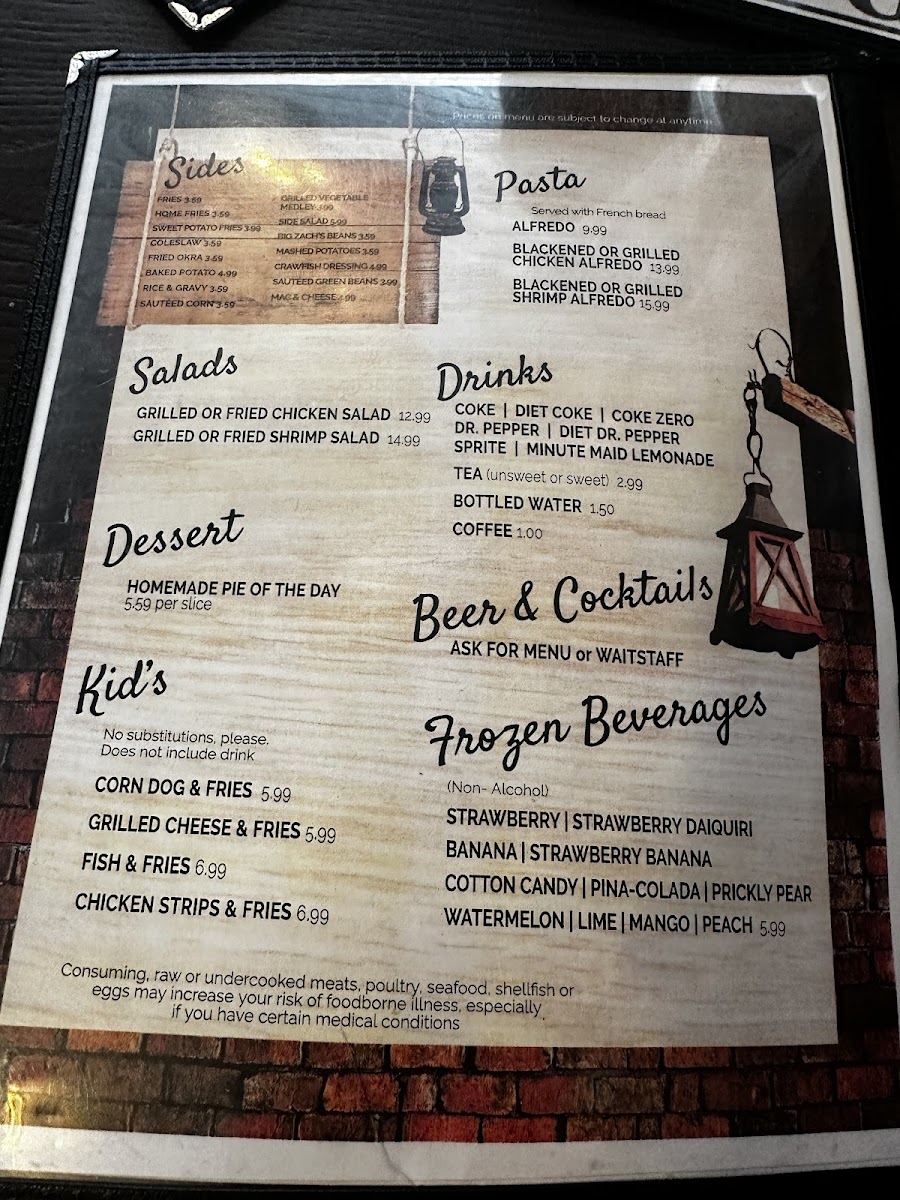 Prices on menu are subject to change at anytime
Sides
FRIES 3.59
HOME FRIES 3.59
SWEET POTATO FRIES 3.99
COLESLAW 3.59
FRIED OKRA 3.59
BAKED POTATO 4.99
RICE & GRAVY 3.59
SAUTÉED CORN 3.59
GRILLED VEGETABLE
MEDLEY 3.99
SIDE SALAD 5.99
BIG ZACH'S BEANS 3.59
MASHED POTATOES 3.59
CRAWFISH DRESSING 4.99
SAUTEED GREEN BEANS 3.99
MAC & CHEESE 4.99
Pasta
Served with French bread
ALFREDO 9.99
BLACKENED OR GRILLED
CHICKEN ALFREDO 13.99
BLACKENED OR GRILLED
SHRIMP ALFREDO 15.99
Salads
GRILLED OR FRIED CHICKEN SALAD 12.99
GRILLED OR FRIED SHRIMP SALAD 14.99
Drinks
COKE | DIET COKE | COKE ZERO
DR. PEPPER | DIET DR. PEPPER
SPRITE | MINUTE MAID LEMONADE
TEA (unsweet or sweet) 2.99
BOTTLED WATER 1.50
COFFEE 1.00
Dessert
HOMEMADE PIE OF THE DAY
5.59 per slice
Beer & Cocktails
ASK FOR MENU or WAITSTAFF
Kid's
No substitutions, please.
Does not include drink
CORN DOG & FRIES 5.99
GRILLED CHEESE & FRIES 5.99
FISH & FRIES 6.99
CHICKEN STRIPS & FRIES 6.99
Frozen Beverages
(Non- Alcohol)
STRAWBERRY | STRAWBERRY DAIQUIRI
BANANA | STRAWBERRY BANANA
COTTON CANDY | PINA-COLADA | PRICKLY PEAR
WATERMELON | LIME | MANGO | PEACH 5.99
Consuming, raw or undercooked meats, poultry, seafood, shellfish or
eggs may increase your risk of foodborne illness, especially
if you have certain medical conditions